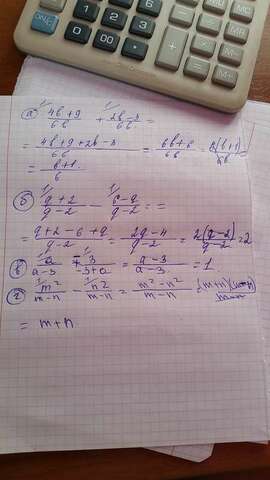 а) 4b+9/6b + 2b-3/6b =
= 4b+9+2b-3/6b = 6b+6/6b = 6(b+1)/6b =
= b+1/b
б) q+2/q-2 - 6-q/q-2 =
= q+2-6+q/q-2 = 2q-4/q-2 = 2(q-2)/q-2 = 2
в) a/a-3 + 3/-3+a = a-3/a-3 = 1.
г) m²/m-n - n²/m-n = m²-n²/m-n = (m+n)(m-n)/m-n
= m+n